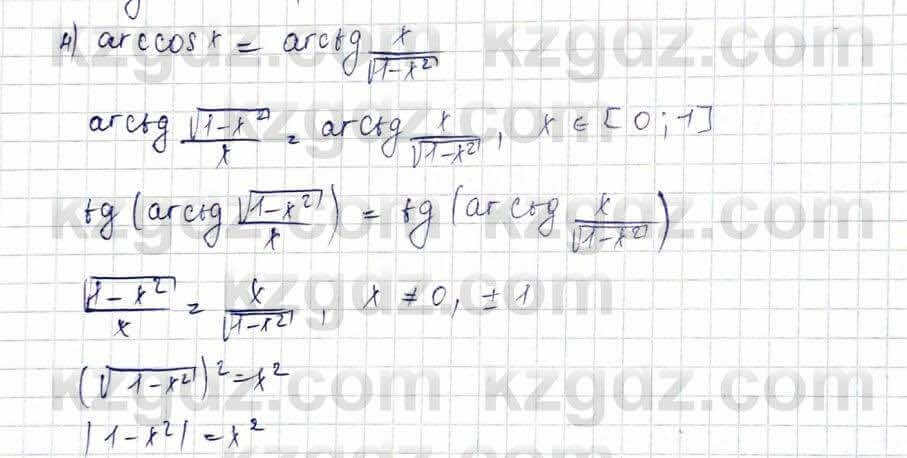 4) arccos x = arctg x/√(1-x²)
arctg √(1-x²)/x = arctg x/√(1-x²), x ∈ [0;1]
tg (arctg √(1-x²)/x) = tg (arctg x/√(1-x²))
√(1-x²)/x = x/√(1-x²), x ≠ 0, ±1
(√(1-x²))² = x²
|1-x²| = x²
kzgdz.com kzgdz.com
kzgdz.com kzgdz.com
kzgdz.com kzgdz.com
kzgdz.com kzgdz.com
kzgdz.com kzgdz.com